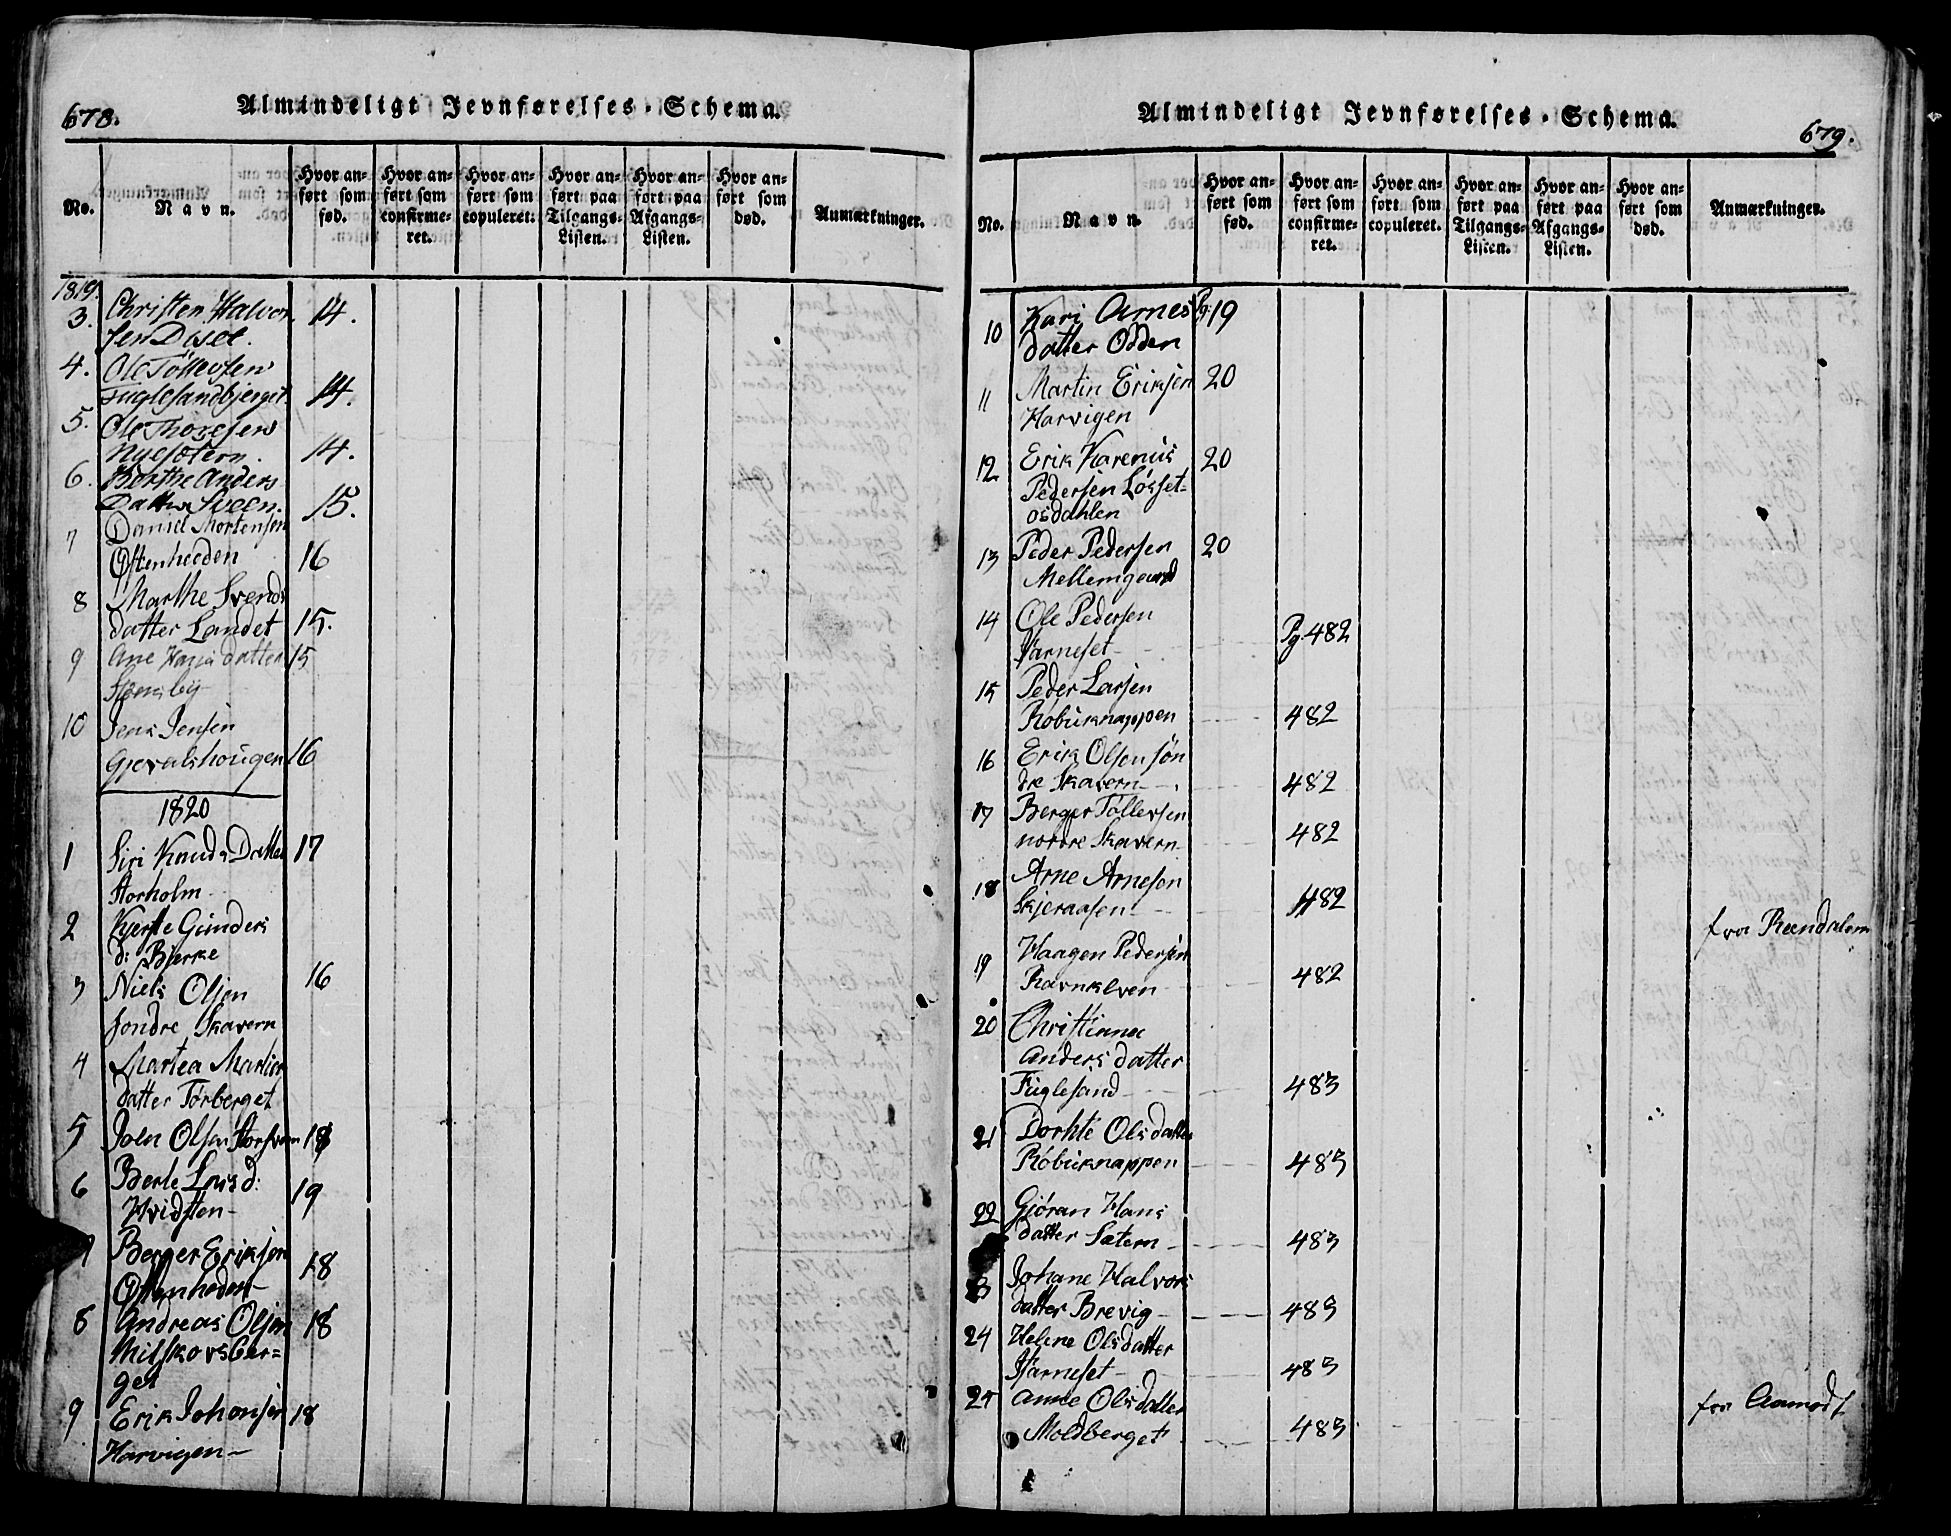 678.
Almindeligt Jevnførelses-Schema.
No.
Navn.
Hvor an-
ført som
fød.
Hvor an-
ført som
confirme-
ret.
Hvor an-
ført som
copuleret.
Hvor an-
ført paa
Tilgangs-
Listen.
Hvor an-
ført paa
Afgangs-
Listen.
Hvor an-
ført som
død.
Anmærkninger.
1819.
3. Christen Halvor
sen Diset. 14.
4. Ole Tollevsen
Fuglesandbjerget. 14.
5. Ole Thoresen
Nysætern. 14.
6. Berthe Anders
Datter Sveen. 15.
7 Daniel Mortensen
Ostenheeden 16
8 Marthe Svends
datter Landet 15.
9 Ane datter 15
Stensby
10 Jens Jensen
Gjevalshougen 16
1820
1 Siri Knuds Datter 17
Storholm
2 Kjerste Gunders
d: Bjerke
3 Niels Olsen 16
søndre Skavern
4 Martea Martins
datter Torberget
5 Joen Olsen 18
6 Berte Larsd: 19
Hvidsten
7 Berger Eriksen 18
Ostenheden
8 Andreas Olsen 18
Milskovsber=
get
9 Erik Johansen 18
Harvigen
679.
Almindeligt Jevnførelses-Schema.
No.
Navn.
Hvor an-
ført som
fød.
Hvor an-
ført som
confirme-
ret.
Hvor an-
ført som
copuleret.
Hvor an-
ført paa
Tilgangs-
Listen.
Hvor an-
ført paa
Afgangs-
Listen.
Hvor an-
ført som
død.
Anmærkninger.
10 Kari Arnes Pg. 19
datter Odden
11 Martin Eriksen 20
Harvigen
12 Erik Karenius 20
Pedersen Løsset=
osdahlen
13 Peder Pedersen 20
Mellemgaard
14 Ole Pedersen
Varneset Pg. 482
15 Peder Larsen
Robuknappen 482
16 Erik Olsen søn
dre Skavern 482
17 Berger Tollevsen
nordre Skavern 482
18 Arne Arnesen
Skjeraasen 482 fra Rændalem
19 Haagen Pedersen
Ravnkleven 482
20 Christiana
Anders datter
Fuglesand 483
21 Dorhte Olsdatter
Robuknappen 483
22 Gjøran Hans
datter Sætern 483
23 Johane Halvors
datter Brevig 483
24 Helene Olsdatter
Varneset 483
25 Anne Olsdatter
Moldberget 483 fra Aamodt